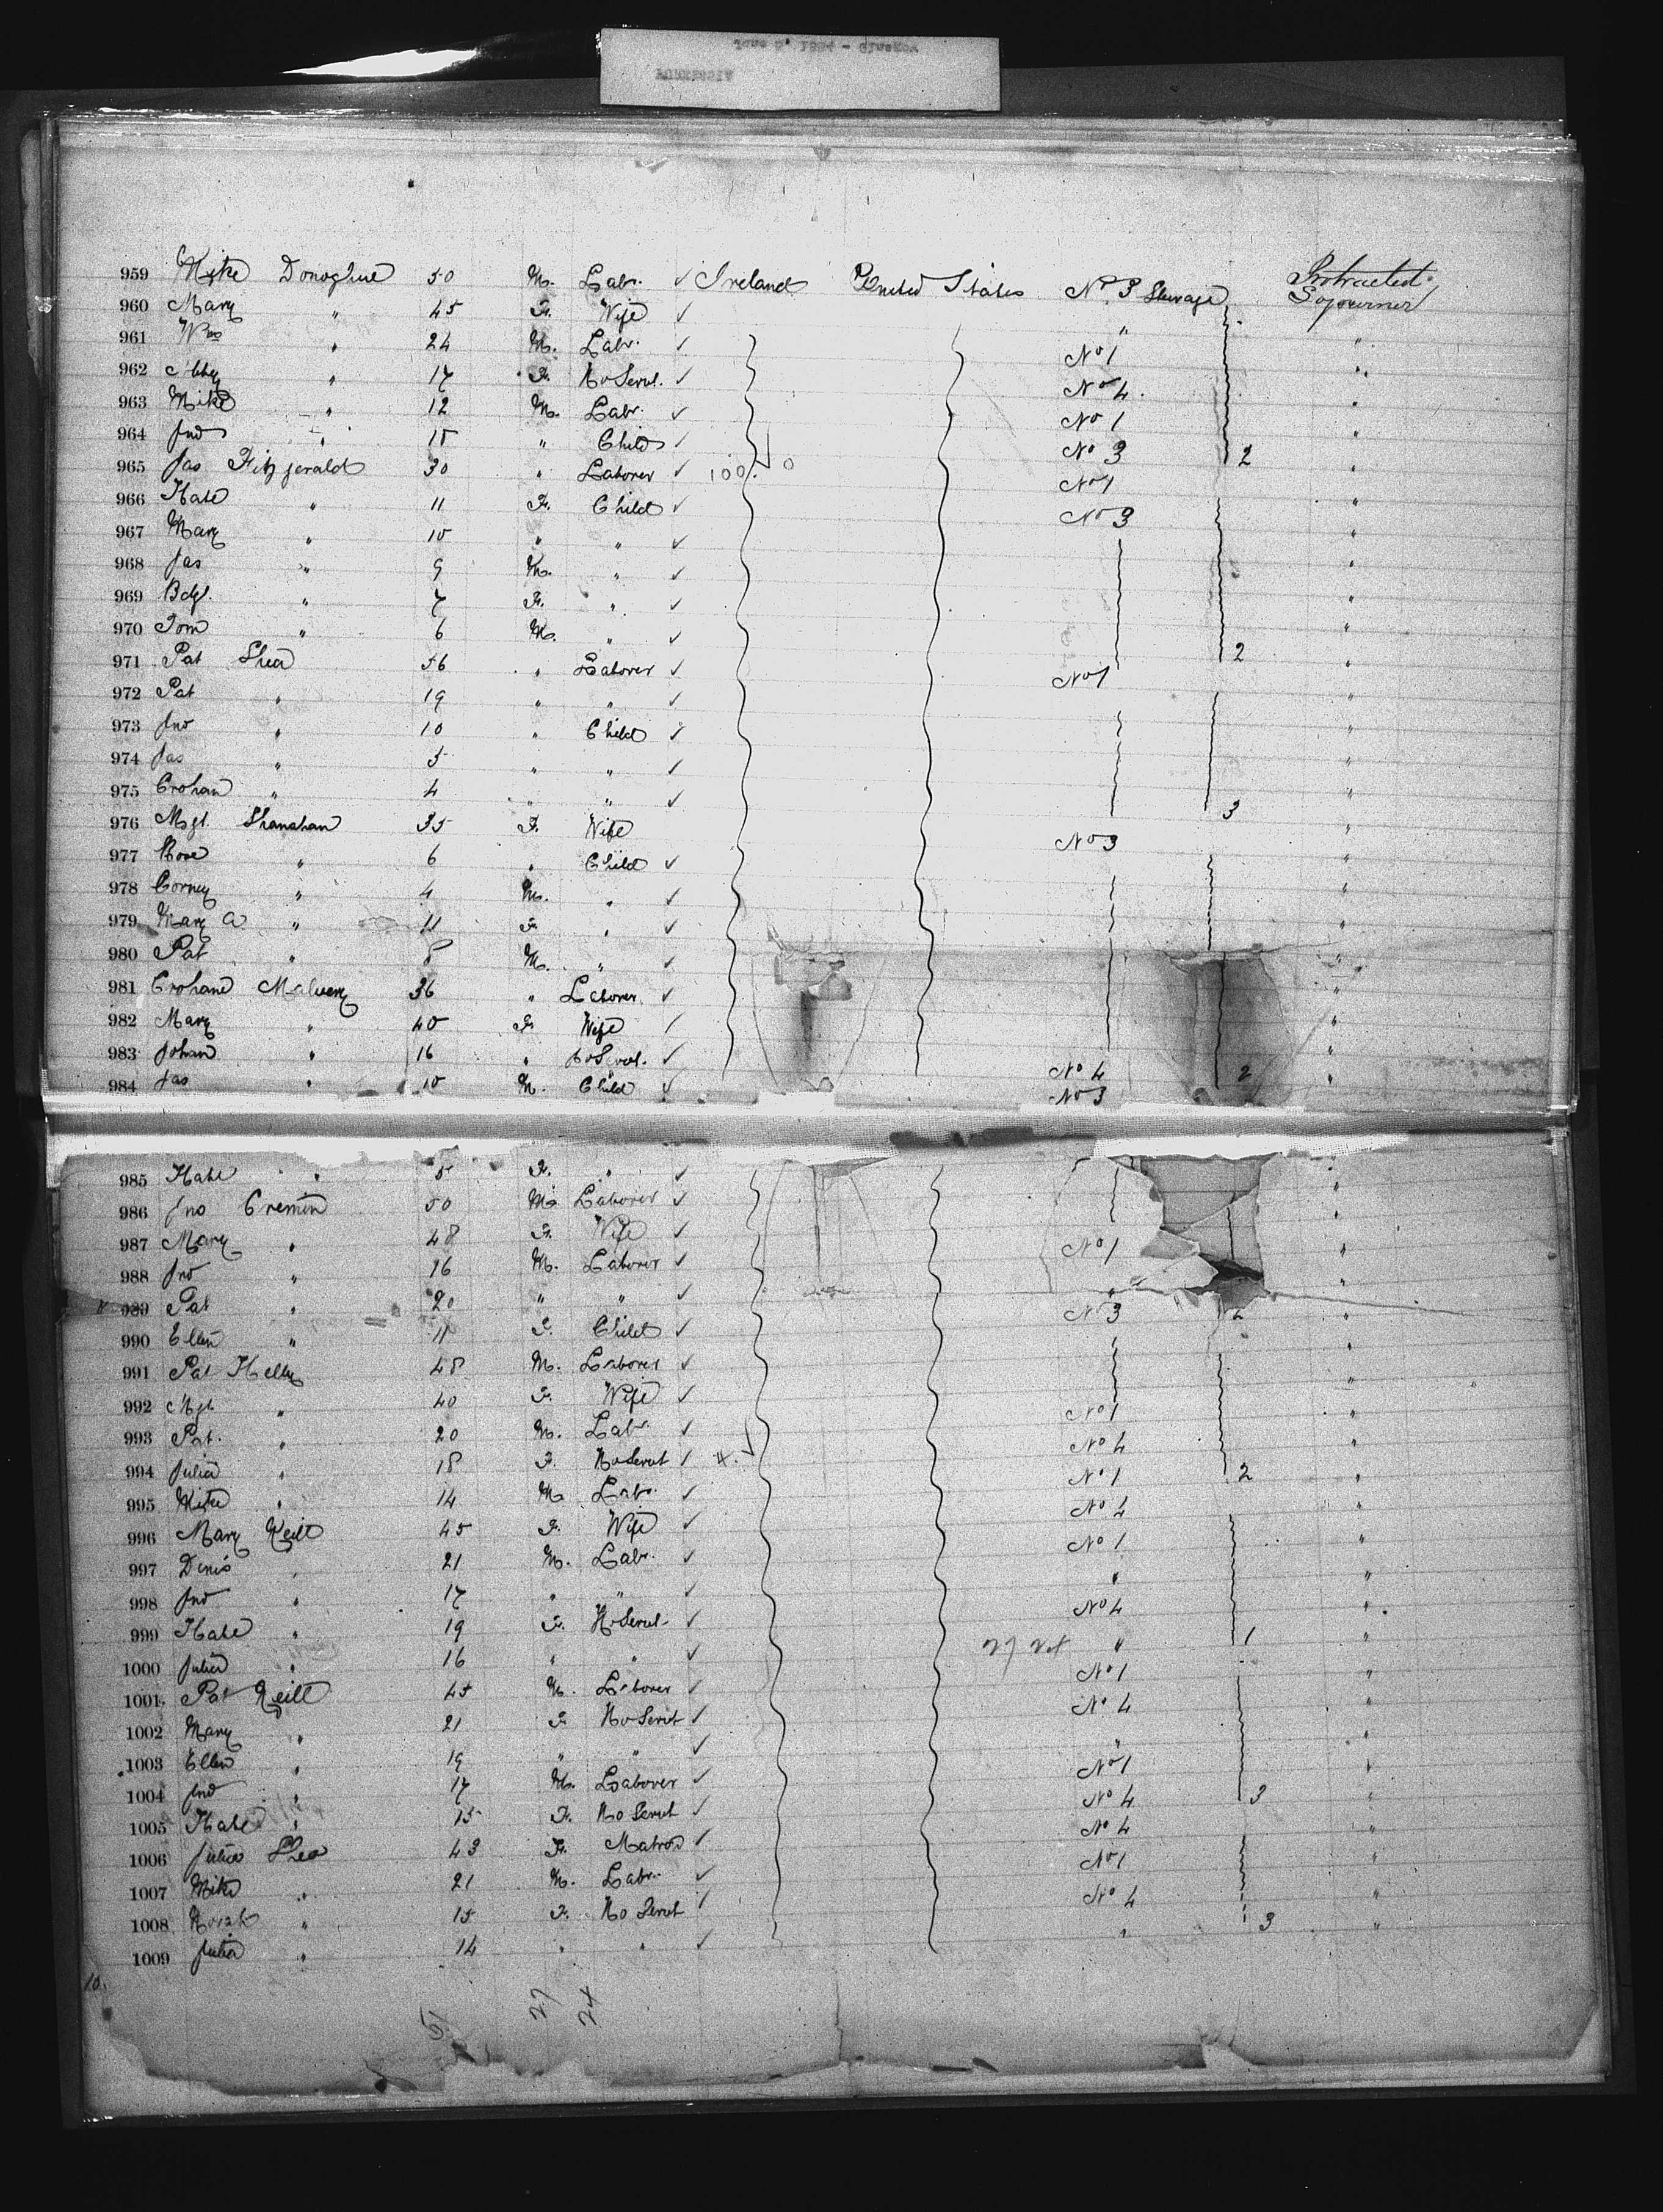 June 5' 1884 - Glasgow
FURNESSIA
959 Mike Donoghue 50 M. Labr. ✓ Ireland United States No 3 Steerage Protracted Sojourner
960 Mary " 45 F. Wife ✓ "
961 Wm " 24 M. Labr. ✓ No 1 "
962 " 17 F. Ho Servt. ✓ No 4 "
963 Mike " 12 M. Labr. ✓ No 1 "
964 Jno " 10 " Child ✓ No 3 2 "
965 Jas Fitzgerald 30 " Laborer ✓ 100 No 1 "
966 Kate " 11 F. Child ✓ No 3 "
967 Mary " 10 " " ✓ "
968 Jas " 9 M. " ✓ "
969 Bdgt. " 7 F. " ✓ "
970 Tom " 6 M. " ✓ 2 "
971 Pat Shea 56 " Laborer ✓ No 1 "
972 Pat " 19 " " ✓ "
973 Jno " 10 " Child ✓ "
974 Jas " 5 " " ✓ "
975 Crohan " 4 " " ✓ 3 "
976 Mgt. Shanahan 35 F. Wife No 3 "
977 " 6 " Child ✓ "
978 Corney " 4 M. " ✓ "
979 Mary A " 11 F. " ✓ "
980 Pat " 8 M. " ✓ "
981 Crohane 36 " Laborer ✓ "
982 Mary " 40 F. Wife ✓ "
983 Johan " 16 " Ho Servt. ✓ No 4 2 "
984 Jas " 10 M. Child ✓ No 3 "
985 Kate " 5 F. " ✓ "
986 Jno Cremin 50 M. Laborer ✓ "
987 Mary " 48 F. Wife ✓ No 1 "
988 Jno " 16 M. Laborer ✓ " "
989 Pat " 20 " " ✓ No 3 2 "
990 Ellen " 11 F. Child ✓
991 Pat Kelly 48 M. Laborer ✓ "
992 Mgt. " 40 F. Wife ✓ No 1 "
993 Pat. " 20 M. Labr. ✓ No 4 "
994 Julia " 18 F. Ho Servt ✓ No 1 2 "
995 Mike " 14 M Labr. ✓ No 4 "
996 Mary Neill 45 F. Wife ✓ No 1 "
997 Denis " 21 M. Labr. ✓ " "
998 Jno " 17 " " ✓ No 4 "
999 Kate " 19 F. Ho Servt ✓ " 1 "
1000 Julia " 16 " " ✓ No 1 "
1001 Pat Neill 45 M. Laborer ✓ No 4 "
1002 Mary " 21 F Ho Servt ✓ " "
1003 Ellen " 19 " " ✓ No 1 "
1004 Jno " 17 M. Laborer ✓ No 4 3 "
1005 Kate " 15 F. Ho Servt ✓ No 4 "
1006 Julia Shea 43 F. Matron ✓ No 1 "
1007 Mike " 21 M. Labr. ✓ No 4 "
1008 Norah " 15 F. Ho Servt ✓ " 3 "
1009 Julia " 14 " " ✓
10.
51 27 24